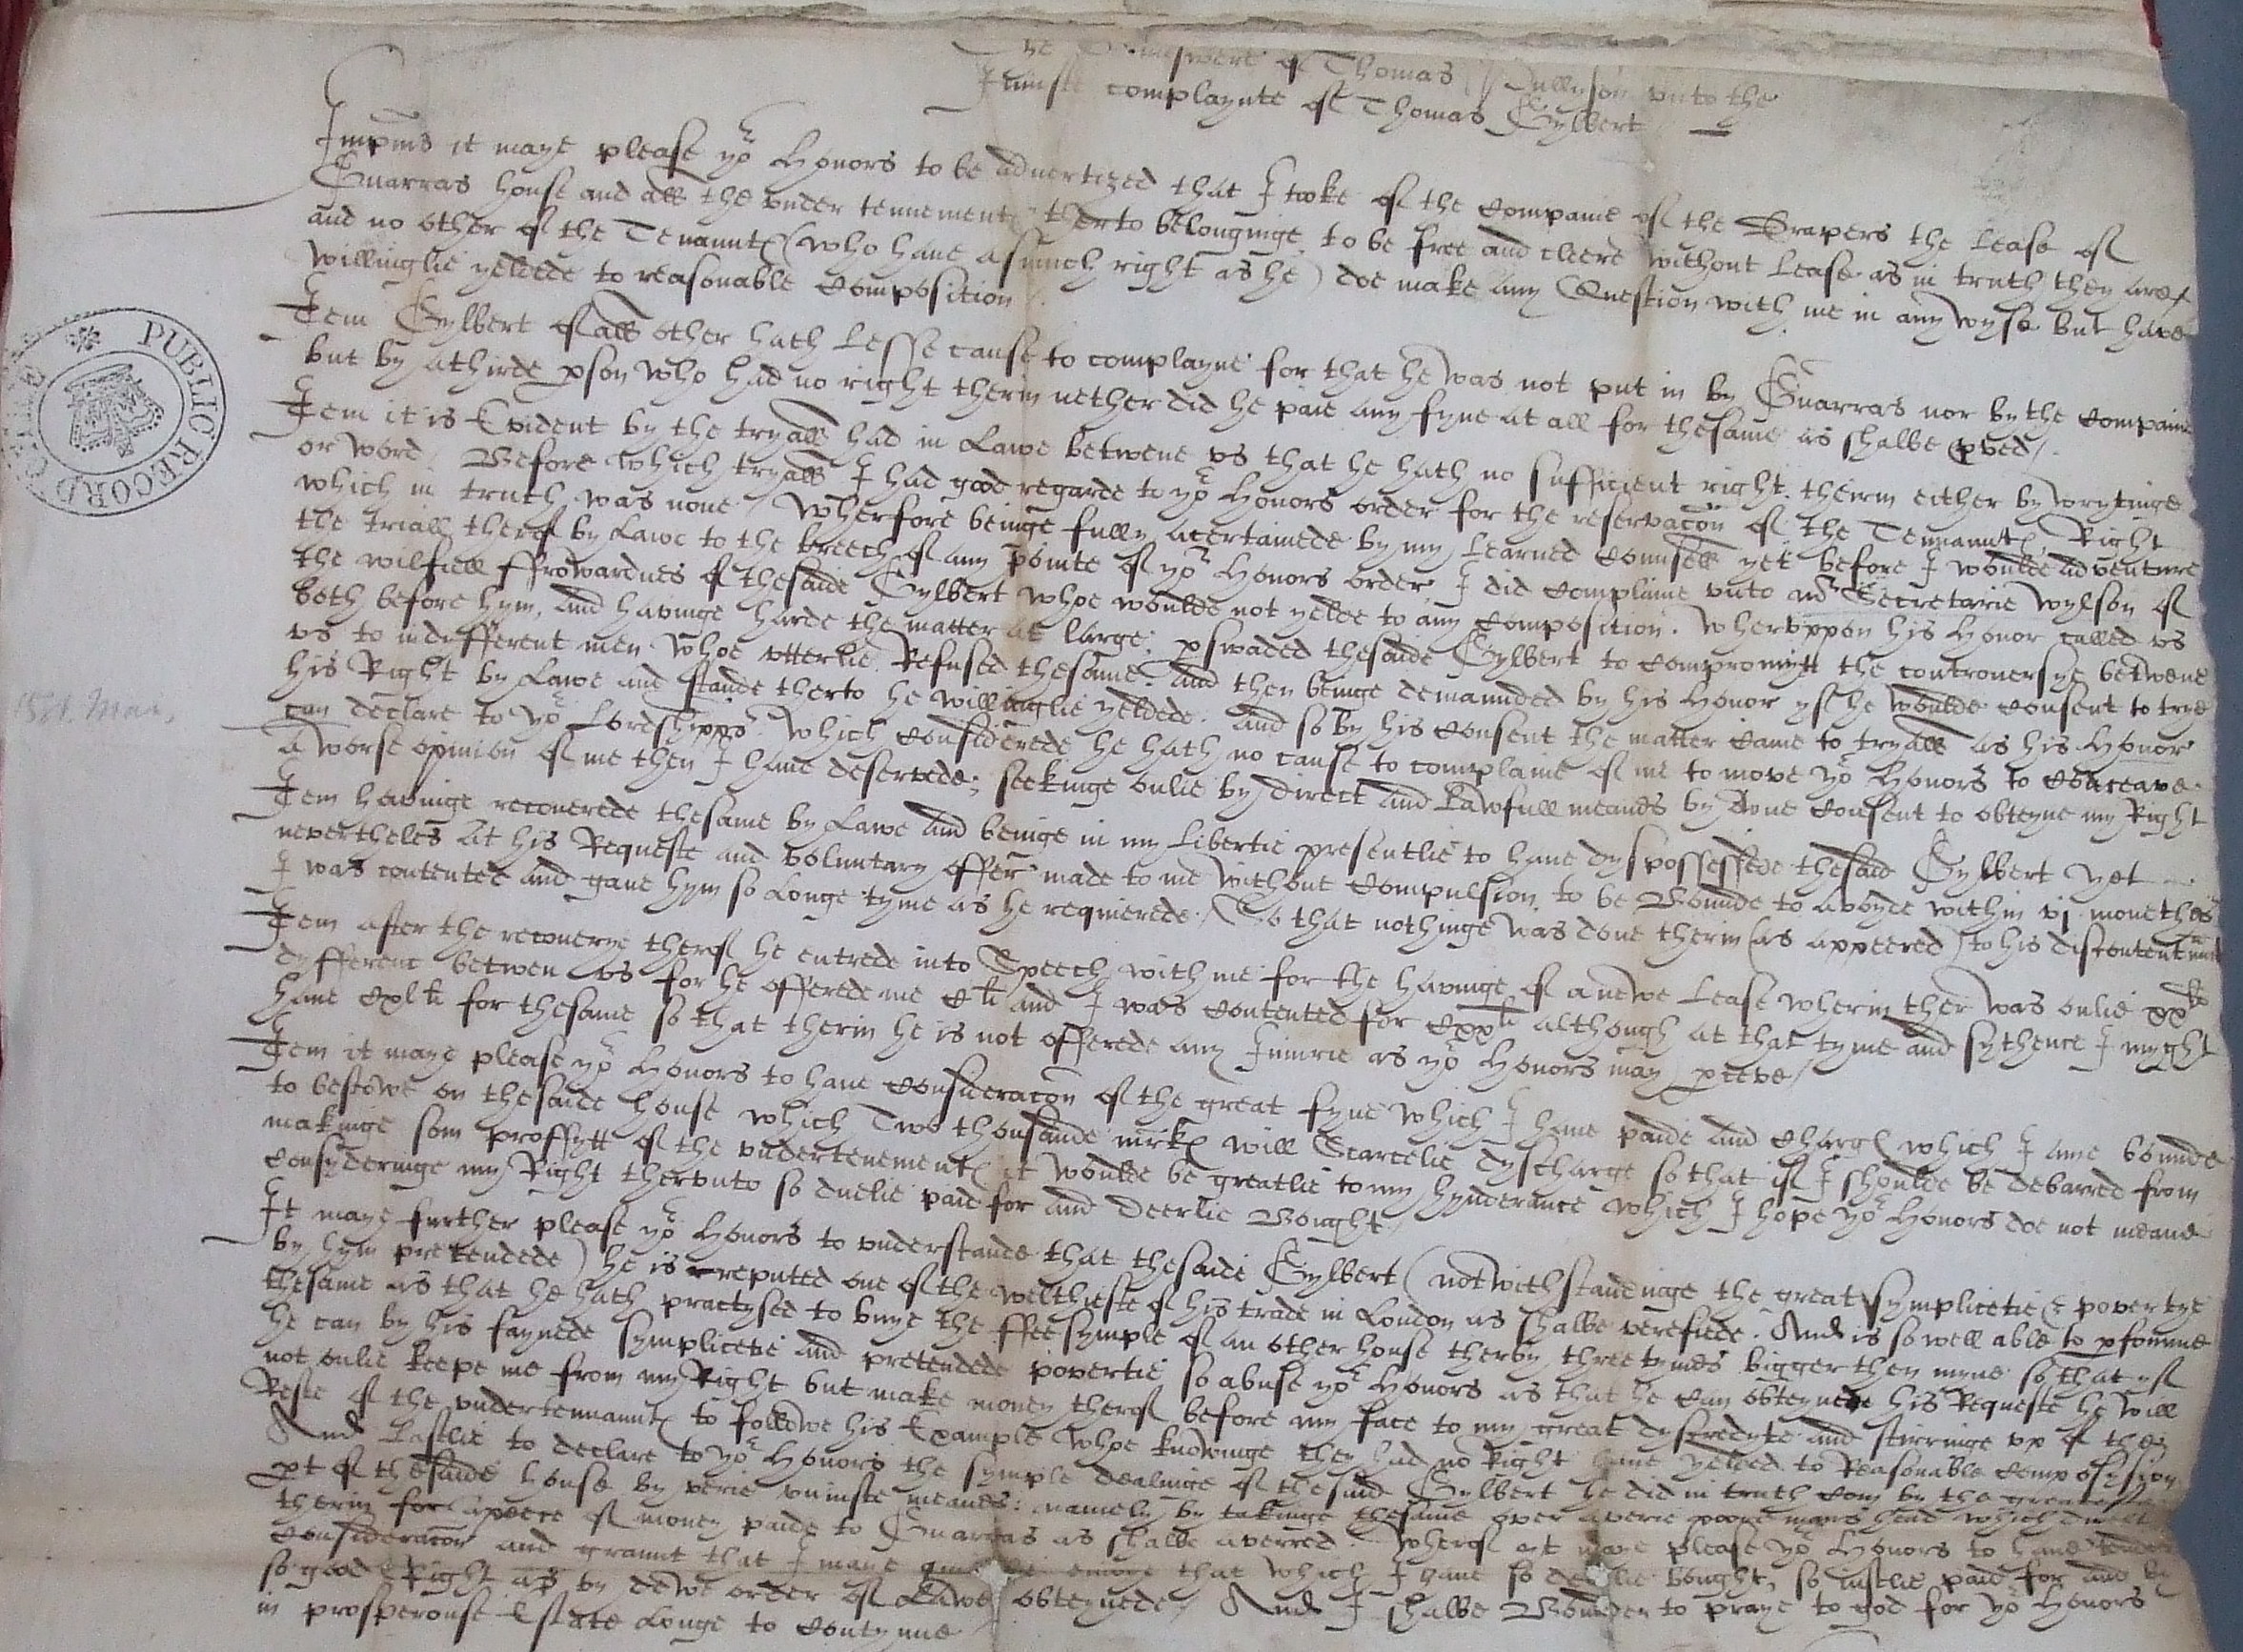 Answere of Thomas Gullyson vnto the
Iniuste complaynte of Thomas Gylbert
Impms it maye please yor Honors to be aduertized that I tooke of the Companie of the Drapers the Lease of
Guarras house and all the vnder tennementℯ therto belonginge to be free and cleere without Lease as in truth they are /
and no other of the Tenanntℯ (who haue asmuch right as he) doe make any Question with me in any wyse but have
willinglie yelded to reasonable Composition /
Item Gylbert of all other hath Lesse cause to complayne for that he was not put in by Guarras nor by the Companie
but by a thirde pson who had no right therin nether did he paie any fyne at all for thesame as shalbe pved /
Item it is Evident by the tryall had in Lawe betwene vs that he hath no sufficient right therin either by wrytinge
or word. Before which tryall I had good regarde to yor Honors order for the reservacon of the Tennanntℯ Right
which in truth was none / Wherfore beinge fully acertainede by my Learned Counsell yet before I woulde adventure
the triall therof by Lawe to the breech of any pointe of yor Honors order, I did complaine vnto mr Secretarie Wylson of
the wilfull ffrowardnes of thesaide Gylbert whoe woulde not yelde to any Composition. Whervppon his Honor called vs
both before hym, and havinge harde the matter at large: pswaded thesaide Gylbert to Compromytt the controuersye betwene
vs to indyfferent men whoe vtterlie Refused thesame. And then beinge demaunded by his Honor yf he woulde Consent to trye
his Right by Lawe and stande therto he willinglie yeldede. And so by his Consent the matter Came to tryall as his Honor
can declare to yor Lordshipps. Which Considerede he hath no cause to complaine of me to move yor Honors to Conceave
A worse opinion of me then I haue deservede; seekinge onlie by direct and Lawfull meanes by Awne Consent to obteyne my Right
Item havinge recouerede thesame by Lawe And beinge in my Libertie presentlie to haue dyspossessede thesaid Gylbert yet
nevertheles At his Requeste and voluntary offer made to me without Compulsion to be Bounde to avoyde within vj monethes
I was contented and gaue hym so Longe tyme as he requierede / So that nothinge was done therin (as appeered) to his discontentment
Item after the recouerye therof he entrede into Speech with me for the havinge of a newe Lease wherin ther was onlie xxli
dyfferenc betwen vs for he offerede me Cli and I was Contented for Cxxli although at that tyme and sythence I myght
haue Cxlli for thesame so that therin he is not offerede any Iniurie as yor Honors may pceve /
Item it maye please yor Honors to haue Consideracon of the great fyne which I haue paide and Chargℯ which I ame bounde
to bestowe on thesaide house which Two thousande mrkℯ will Scarcelie dyscharge so that if I shoulde be debarred from
makinge som proffytt of the vndertenementℯ it woulde be greatlie to my hynderance which I hope yor Honors doe not meane
Consyderinge my Right thervnto so duelie paid for and Deerlie Bought /
It maye further please yor Honors to vnderstande that thesaide Gylbert (notwithstandinge the great symplicetie & povertye
by hym pretendede) he is reputed one of the welthieste of his trade in London as shalbe verefiede. And is so well able to pfourme
thesame as that he hath practysed to buye the ffee symple of an other house therby three tymes bigger then myne so that yf
he can by his faynede symplicetie and pretendede povertie so abuse yor Honors as that he Can obteyne his Requeste he will
not onlie keepe me from my Right but make money therof before my face to my great dyscredyte and stirringe vp of the
Reste of the vndertennanntℯ to followe his Example whoe knowinge they had no Right haue yelded to Reasonable Composysion
And Lastlie to declare to yor Honors the symple dealinge of thesaid Gylbert he did in truth Com by the
pt of thesaide house by verie vniuste meanes: namely by takinge thesame over a verie poore mans head which
therin for a peece of money paide to Guarras as shalbe averred. Wherof yt maye please yor Honors to haue
Consideracon and graunt that I maye enioye that which I haue so deerlie bought, so iustlie paid for and by
so good Right as by dewe order of Lawe obteynede / And I shalbe Bounden to praye to god for yor Honors
in prosperouse Estate Longe to Contynue
PUBLIC RECORD